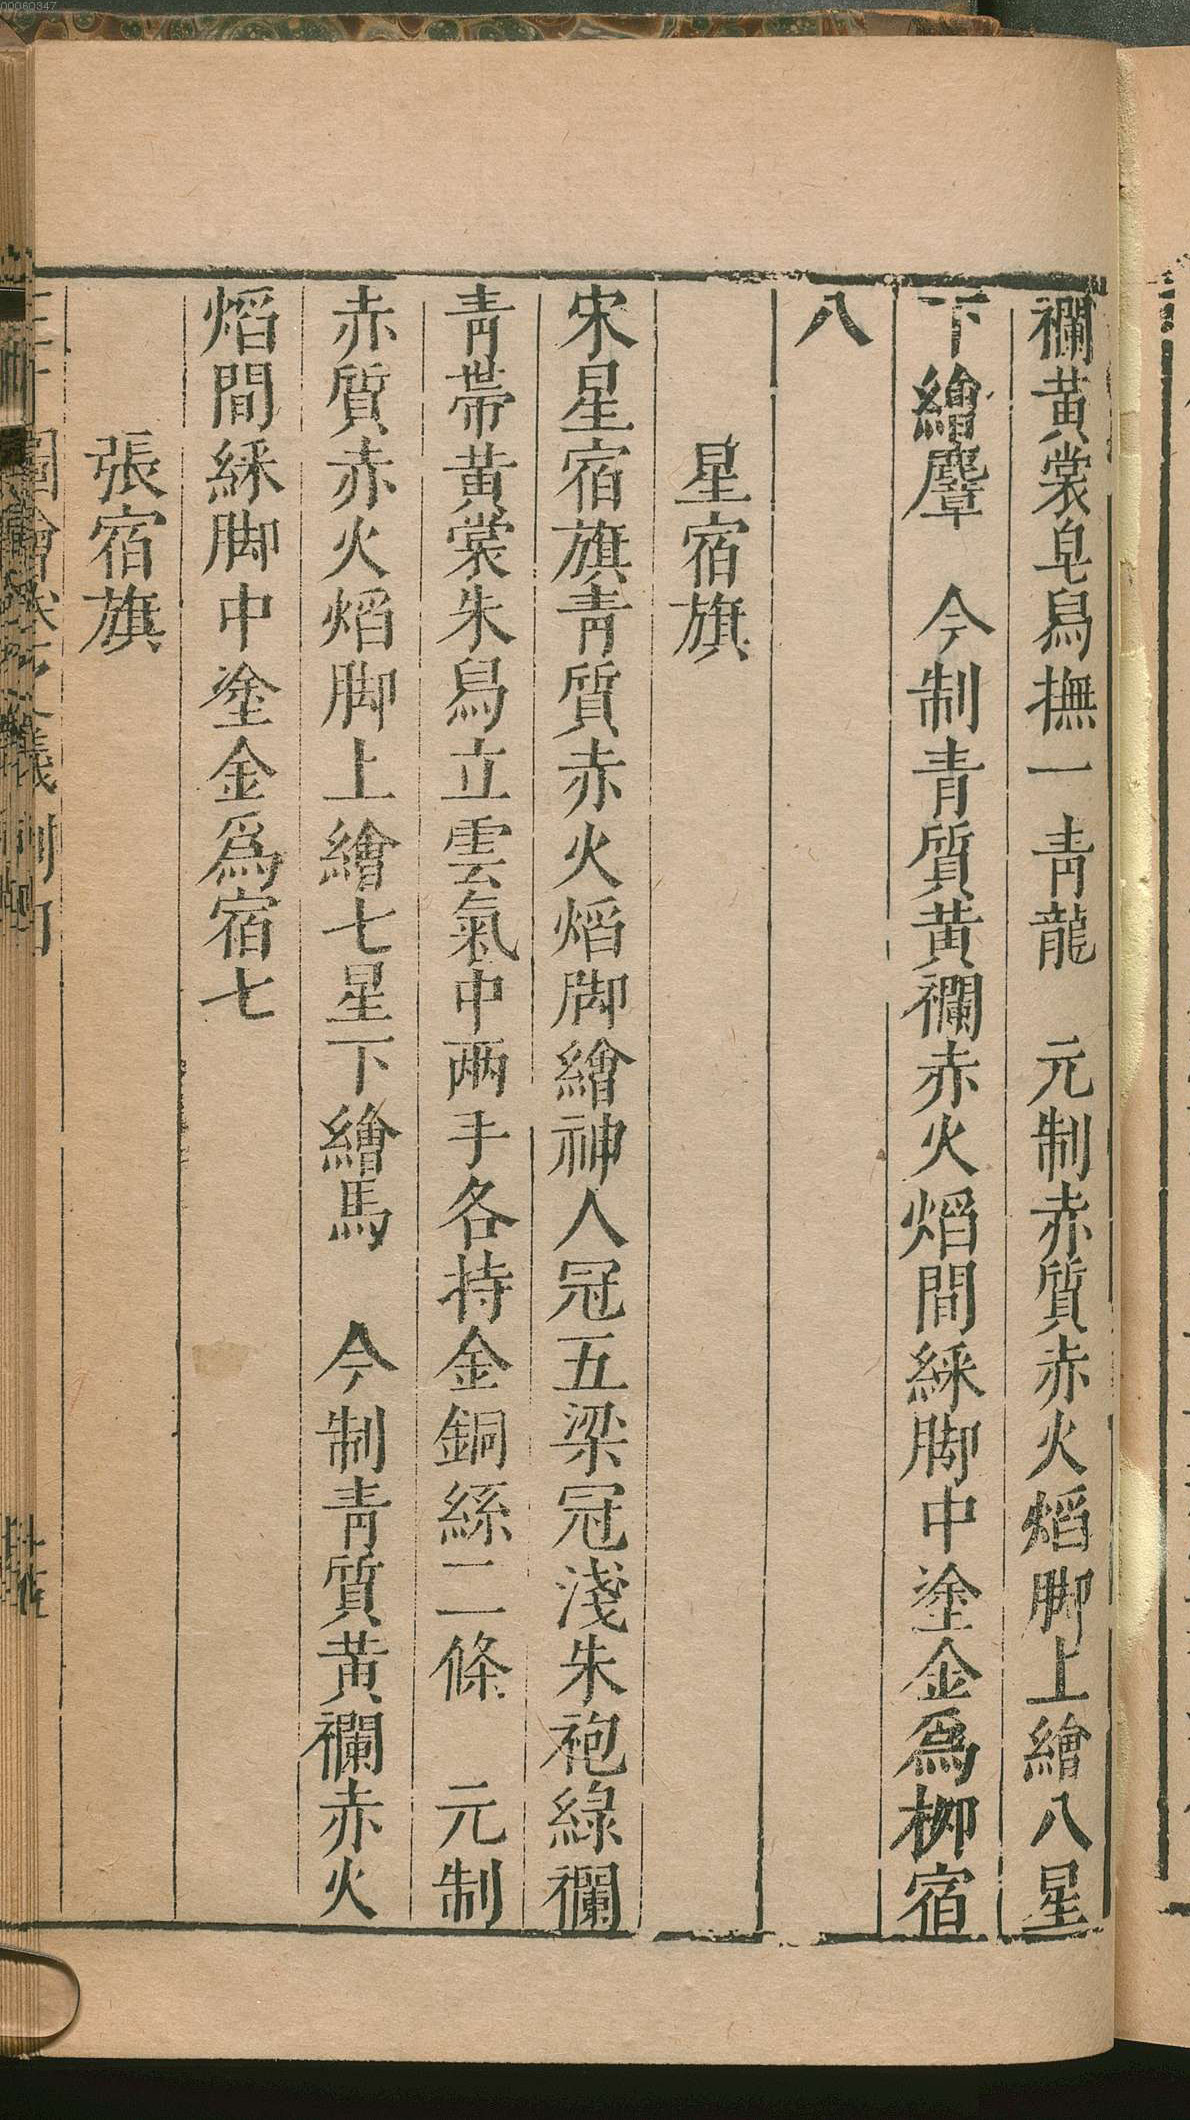 襴黄裳皂舄撫一青龍　元制赤質赤火熖脚上繪八星
下繪麞　今制青質黄襴赤火熖間綵脚中塗金爲柳宿
八
星宿旗
宋星宿旗青質赤火熖脚繪神人冠五梁冠淺朱袍綠襴
青帶黄裳朱舄立雲氣中两手各持金銅絲二條　元制
赤質赤火熖脚上繪七星下繪馬　今制青質黄襴赤火
熖間綵脚中塗金爲宿七
張宿旗
00060347